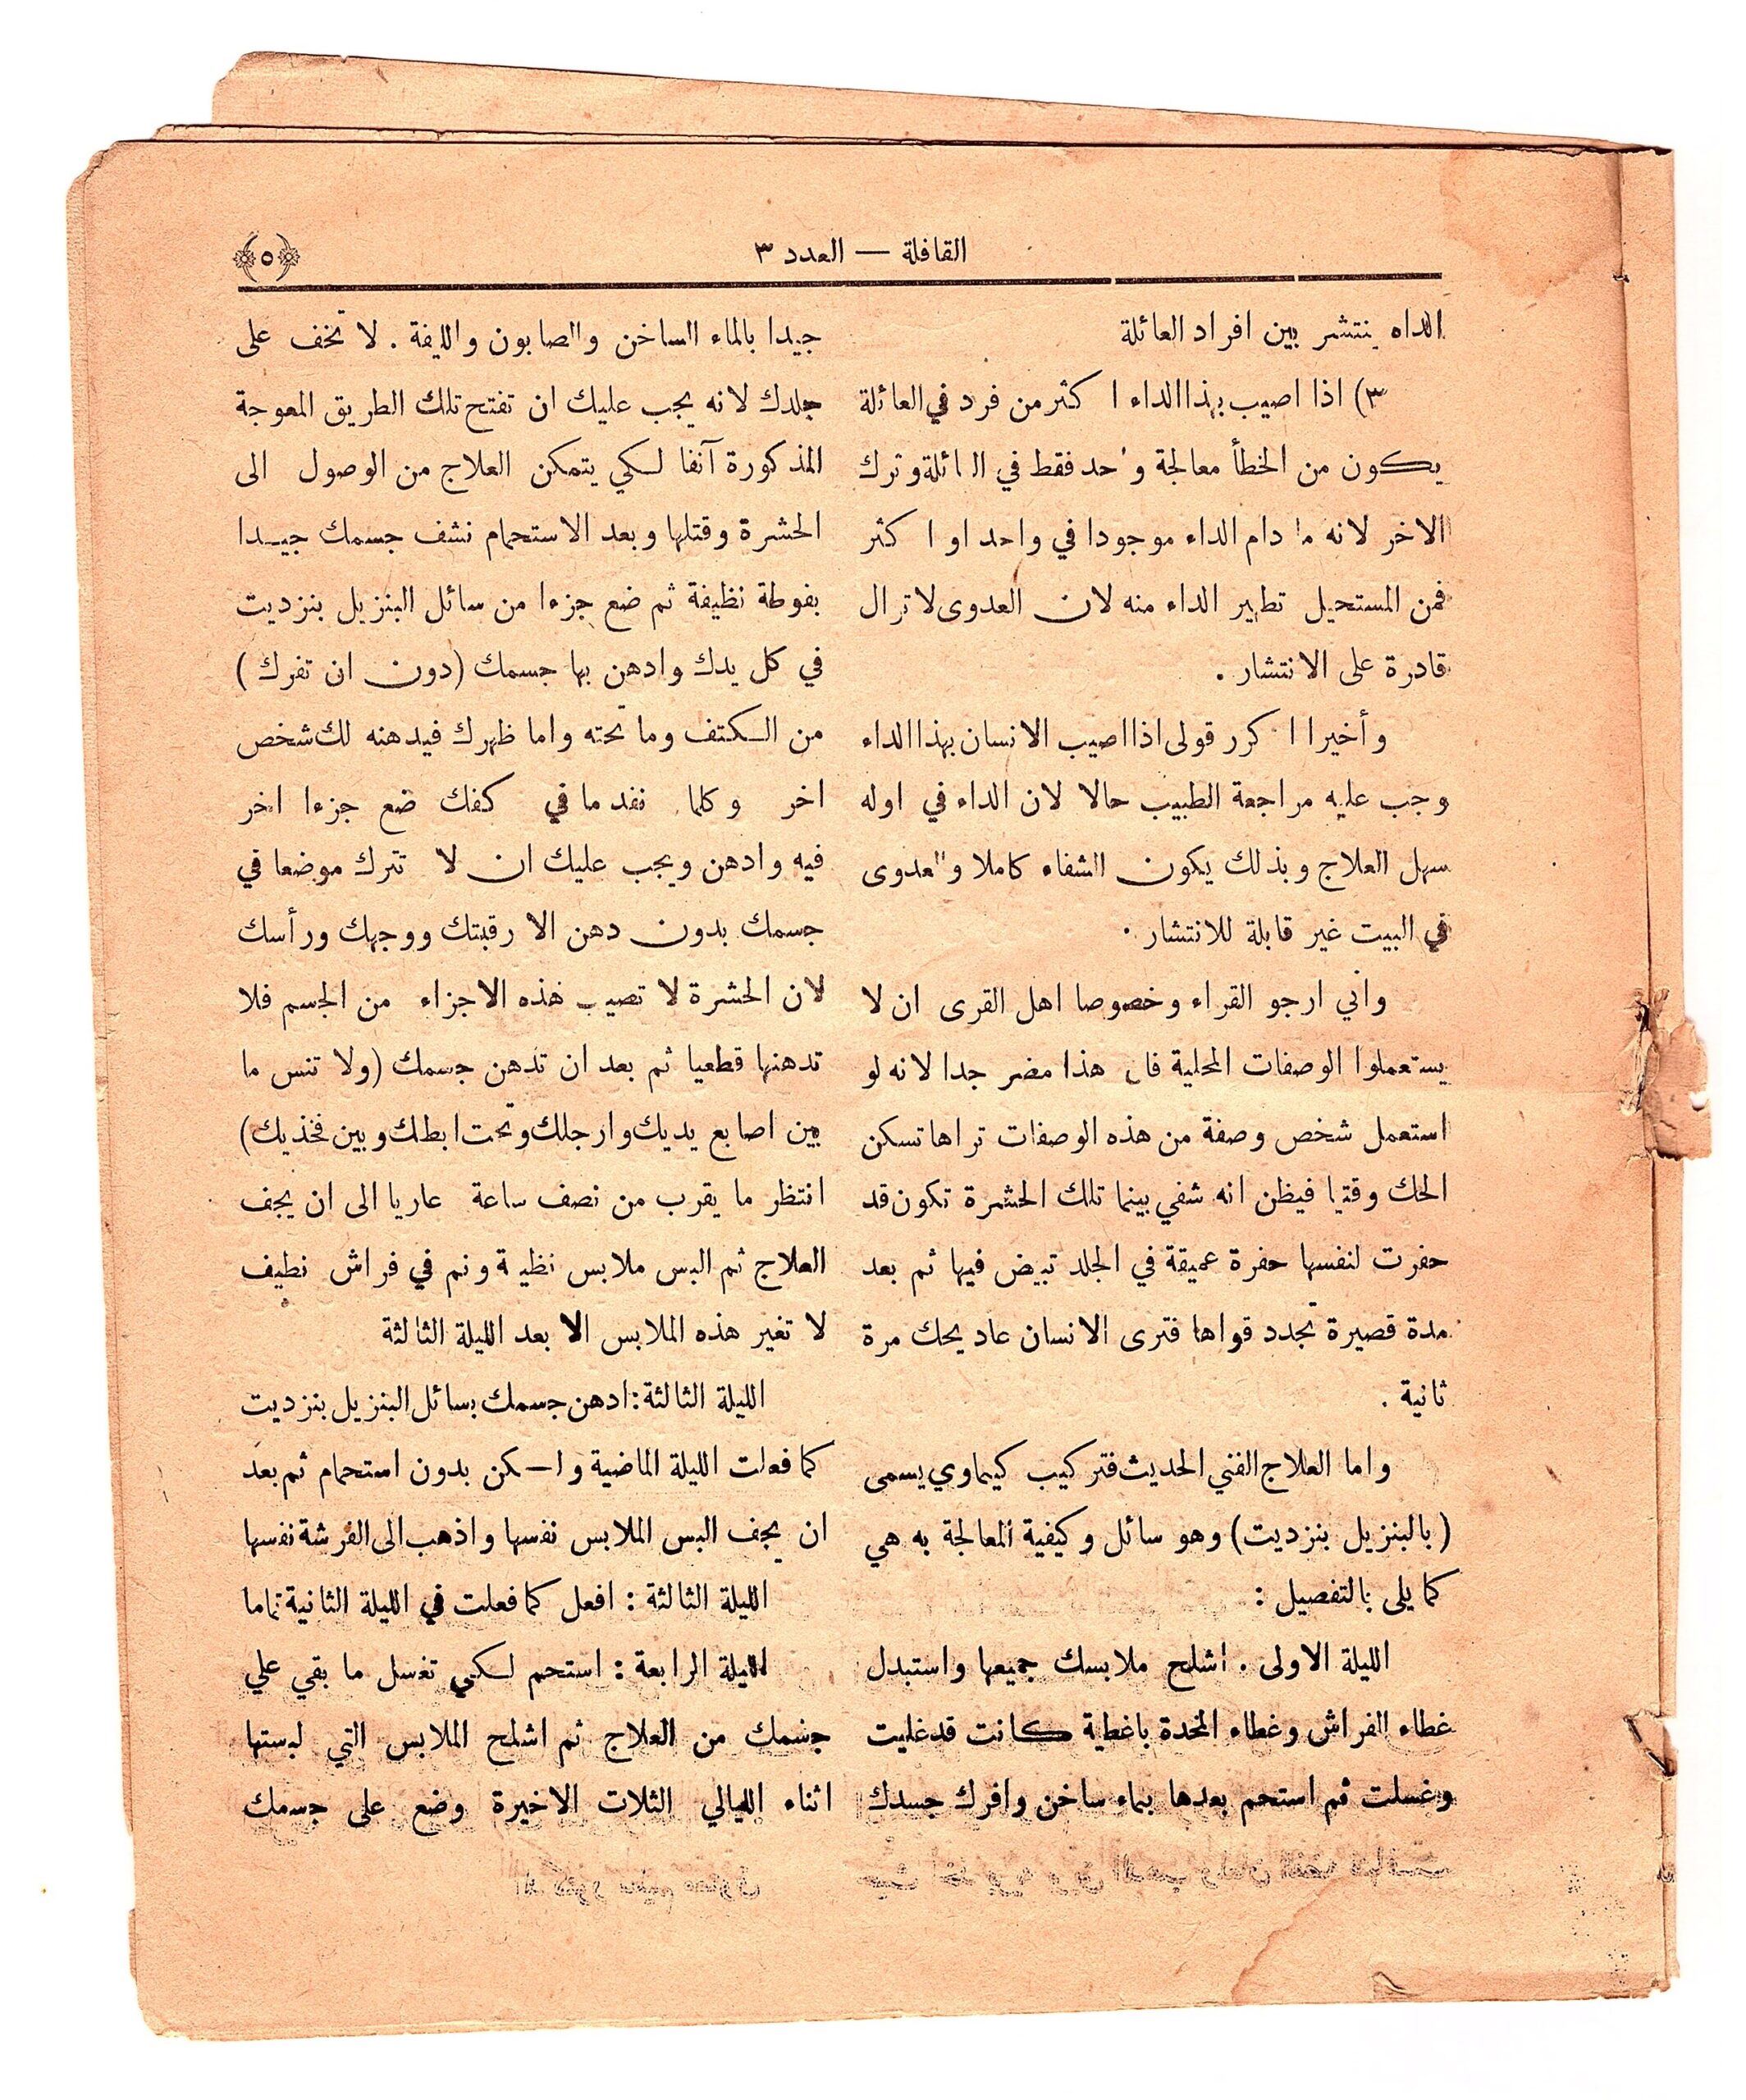 القافلة — العدد ٣
(٥)
الداء ينتشر بين افراد العائلة
٣) اذا اصيب بهذا الداء اكثر من فرد في العائلة
يكون من الخطأ معالجة واحد فقط في العائلة وترك
الاخر لانه ما دام الداء موجودا في واحد او اكثر
فمن المستحيل تطهير الداء منه لان العدوى لا تزال
قادرة على الانتشار .
وأخيرا اكرر قولى اذا اصيب الانسان بهذا الداء
وجب عليه مراجعة الطبيب حالا لان الداء في اوله
سهل العلاج وبذلك يكون الشفاء كاملا والعدوى
في البيت غير قابلة للانتشار .
واني ارجو القراء وخصوصا اهل القرى ان لا
يستعملوا الوصفات المحلية فان هذا مضر جدا لانه لو
استعمل شخص وصفة من هذه الوصفات تراها تسكن
الحك وقتيا فيظن انه شفي بينما تلك الحشرة تكون قد
حفرت لنفسها حفرة عميقة في الجلد تبيض فيها ثم بعد
مدة قصيرة تجدد قواها فترى الانسان عاد يحك مرة
ثانية .
واما العلاج الفني الحديث فتركيب كيماوي يسمى
(بالبنزيل بنزديت) وهو سائل وكيفية المعالجة به هي
كما يلى بالتفصيل :
الليلة الاولى . اشلح ملابسك جميعها واستبدل
غطاء الفراش وغطاء المخدة باغطية كانت قد غليت
وغسلت ثم استحم بعدها بماء ساخن وافرك جسدك
جيدا بالماء الساخن والصابون والليفة . لا تخف على
جلدك لانه يجب عليك ان تفتح تلك الطريق المعوجة
المذكورة آنفا لكي يتمكن العلاج من الوصول الى
الحشرة وقتلها وبعد الاستحمام نشف جسمك جيدا
بفوطة نظيفة ثم ضع جزءا من سائل البنزيل بنزديت
في كل يدك وادهن بها جسمك (دون ان تفرك)
من الكتف وما تحته واما ظهرك فيدهنه لك شخص
اخر وكلما نفد ما في كفك ضع جزءا اخر
فيه وادهن ويجب عليك ان لا تترك موضعا في
جسمك بدون دهن الا رقبتك ووجهك ورأسك
لان الحشرة لا تصيب هذه الاجزاء من الجسم فلا
تدهنها قطعيا ثم بعد ان تدهن جسمك (ولا تنس ما
بين اصابع يديك وارجلك وتحت ابطك وبين فخذيك)
انتظر ما يقرب من نصف ساعة عاريا الى ان يجف
العلاج ثم البس ملابس نظيفة ونم في فراش نظيف
لا تغير هذه الملابس الا بعد الليلة الثالثة
الليلة الثالثة : ادهن جسمك بسائل البنزيل بنزديت
كما فعلت الليلة الماضية ولكن بدون استحمام ثم بعد
ان يجف البس الملابس نفسها واذهب الى الفرشة نفسها
الليلة الثالثة : افعل كما فعلت في الليلة الثانية تماما
الليلة الرابعة : استحم لكي تغسل ما بقي علي
جسمك من العلاج ثم اشلح الملابس التي لبستها
اثناء الليالي الثلاث الاخيرة وضع على جسمك